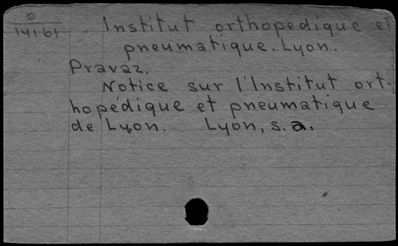 0
14161
Institut orthopedique et
pneumatique. Lyon.
Pravaz.
Notice sur l'Institut ort-
hopédique et pneumatique
de Lyon. Lyon, s.a.